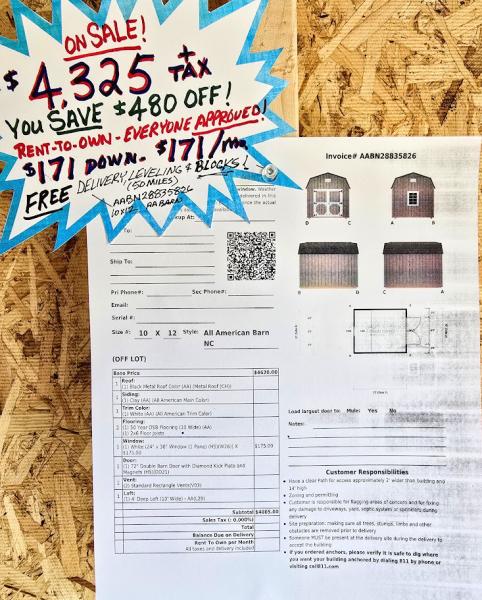 ON SALE!
$4,325 + TAX
YOU SAVE $480 OFF!
RENT-TO-OWN - EVERYONE APPROVED!
$171 DOWN - $171/mo.
FREE DELIVERY, LEVELING & BLOCKS!
(50 MILES)
AABN28835826
10x12 AA BARN
Invoice# AABN28835826
D C A B
B D C A
To:
Ship To:
Pri Phone#: Sec Phone#:
Email:
Serial #:
Size #: 10 X 12 Style: All American Barn
NC
(OFF LOT)
Base Price $4630.00
Roof:
(1) Black Metal Roof Color (AA) (Metal Roof)
Siding:
(1) Clay (AA) (All American Main Color)
Trim Color:
(1) White (AA) (All American Trim Color)
Flooring:
(1) 50 Year OSB Flooring (10 Wide) (AA)
(1) 2x6 Floor Joists
Window:
(1) White (24" x 36" Window (1 Pane) X
$175.00 $175.00
Door:
(1) 72" Double Barn Door with Diamond Kick Plate and
Magnets
Vent:
(2) Standard Rectangle Vents
Loft:
(1) 4' Deep Loft (10' Wide) - AA
Subtotal $4805.00
Sales Tax
Total
Balance Due on Delivery
Rent To Own per Month
All taxes and delivery included
Load largest door to: Mule: Yes No
Notes:
Customer Responsibilities
• Have a clear Path for access approximately 2' wider than building and
14' high
• Zoning and permitting
• Customer is responsible for flagging areas of concern and for fixing
any damage to driveways, yard, septic system or sprinklers during
delivery
• Site preparation: making sure all trees, stumps, limbs and other
obstacles are removed prior to delivery
• Someone MUST be present at the delivery site during the delivery to
accept the building
• If you ordered anchors, please verify it is safe to dig where
you want your building anchored by dialing 811 by phone or
visiting call811.com